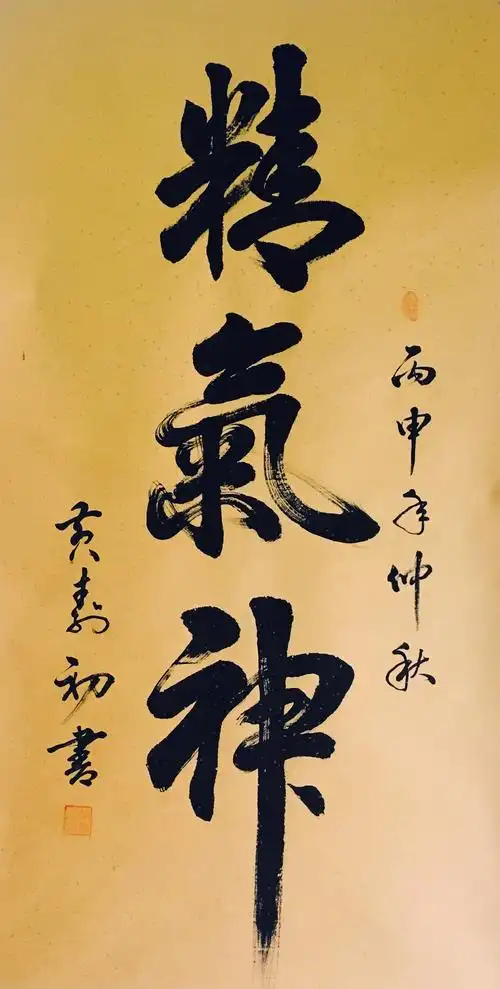 丙申年仲秋
精氣神
黄壽初書